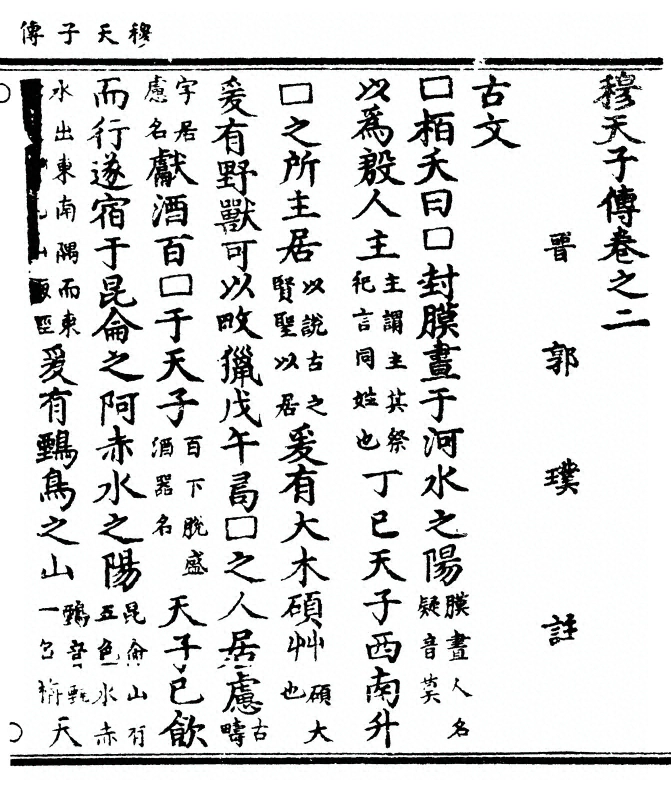 穆天子傳
穆天子傳卷之二
晉郭璞註
古文
□柏夭曰□封膜晝于河水之陽膜晝人名疑音莫
以為殷人主主謂主其祭祀言同姓也丁巳天子西南升
□之所主居以說古之賢聖以居爰有大木碩艸碩大也
爰有野獸可以畋獵戊午𠷎□之人居慮古疇
字居慮名獻酒百□于天子百下脫盛酒器名天子已飲
而行遂宿于昆侖之阿赤水之陽昆侖山有五色水赤
水出東南隅而東山經爰有鶽鳥之山鶽音甄一天